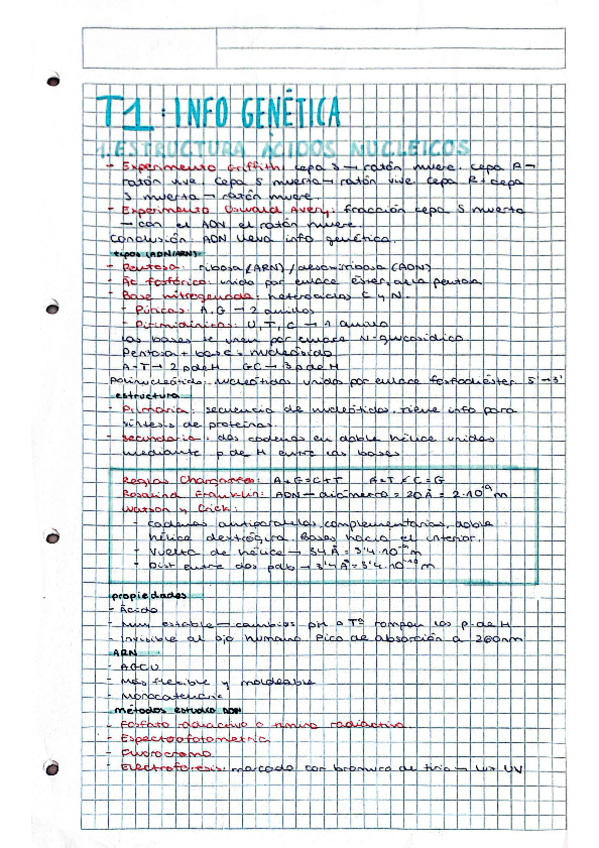 T1: INFO GENÉTICA
1. ESTRUCTURA ÁCIDOS NUCLEICOS
- Experimento Griffith: cepa S → ratón muere. Cepa R →
ratón vive. Cepa S muerta → ratón vive. Cepa R + cepa
S muerta → ratón muere.
- Experimento Oswald Avery: fracción cepa S muerta
→ con el ADN, el ratón muere.
Conclusión: ADN lleva info genética.
tipos (ADN/ARN):
- Pentosa: ribosa (ARN) / desoxirribosa (ADN)
- Ác fosfórico: unido por enlace éster a la pentosa
- Base nitrogenada: heterociclos C y N.
- Púricas: A, G → 2 anillos
- Pirimidínicas: U, T, C → 1 anillo
Las bases se unen por enlace N-glucosídico
Pentosa + base = nucleósido
A-T → 2 p de H GC → 3 p de H
Polinucleótido: nucleótidos unidos por enlace fosfodiéster 5'→3'
estructura
- Primaria: secuencia de nucleótidos, tiene info para
síntesis de proteínas.
- Secundaria: dos cadenas en doble hélice unidas
mediante p de H entre las bases
Reglas Chargaff: A+G=C+T A=T C=G
Rosalind Franklin: ADN → diámetro = 20 Å = 2·10⁻⁹ m
Watson y Crick:
- cadenas antiparalelas, complementarias, doble
hélice dextrógira. Bases hacia el interior.
- Vuelta de hélice → 34 Å = 3'4·10⁻⁹ m
- Dist entre dos pdb → 3'4 Å = 3'4·10⁻¹⁰ m
propiedades
- Ácido
- Muy estable → cambios pH o Tª rompen los p. de H
- Invisible al ojo humano. Pico de absorción a 260nm
ARN
- AGCU
- Más flexible y moldeable
- Monocatenario
métodos estudio ADN
- Fosfato radiactivo o timina radiactiva
- Espectrofotometría
- Fluorocromo
- Electroforesis: marcado con bromuro de → luz UV